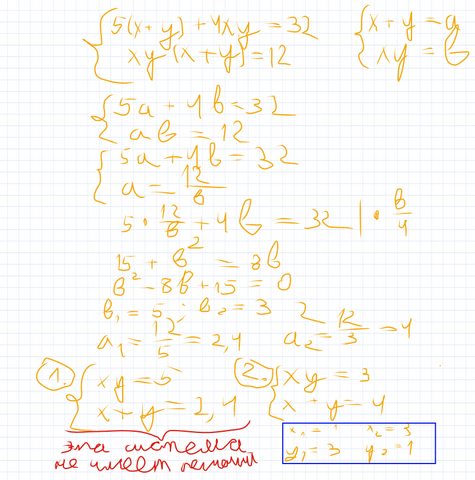 5(x+y)+4xy=32
xy(x+y)=12
x+y=a
xy=b
5a+4b=32
ab=12
5a+4b=32
a=12/b
5·12/b+4b=32 | ·b/4
15+b²=8b
b²-8b+15=0
b₁=5; b₂=3
a₁=12/5=2,4 a₂=12/3=4
1. xy=5
x+y=2,4
2. xy=3
x+y=4
эта система
не имеет решений
x₁=1 x₂=3
y₁=3 y₂=1